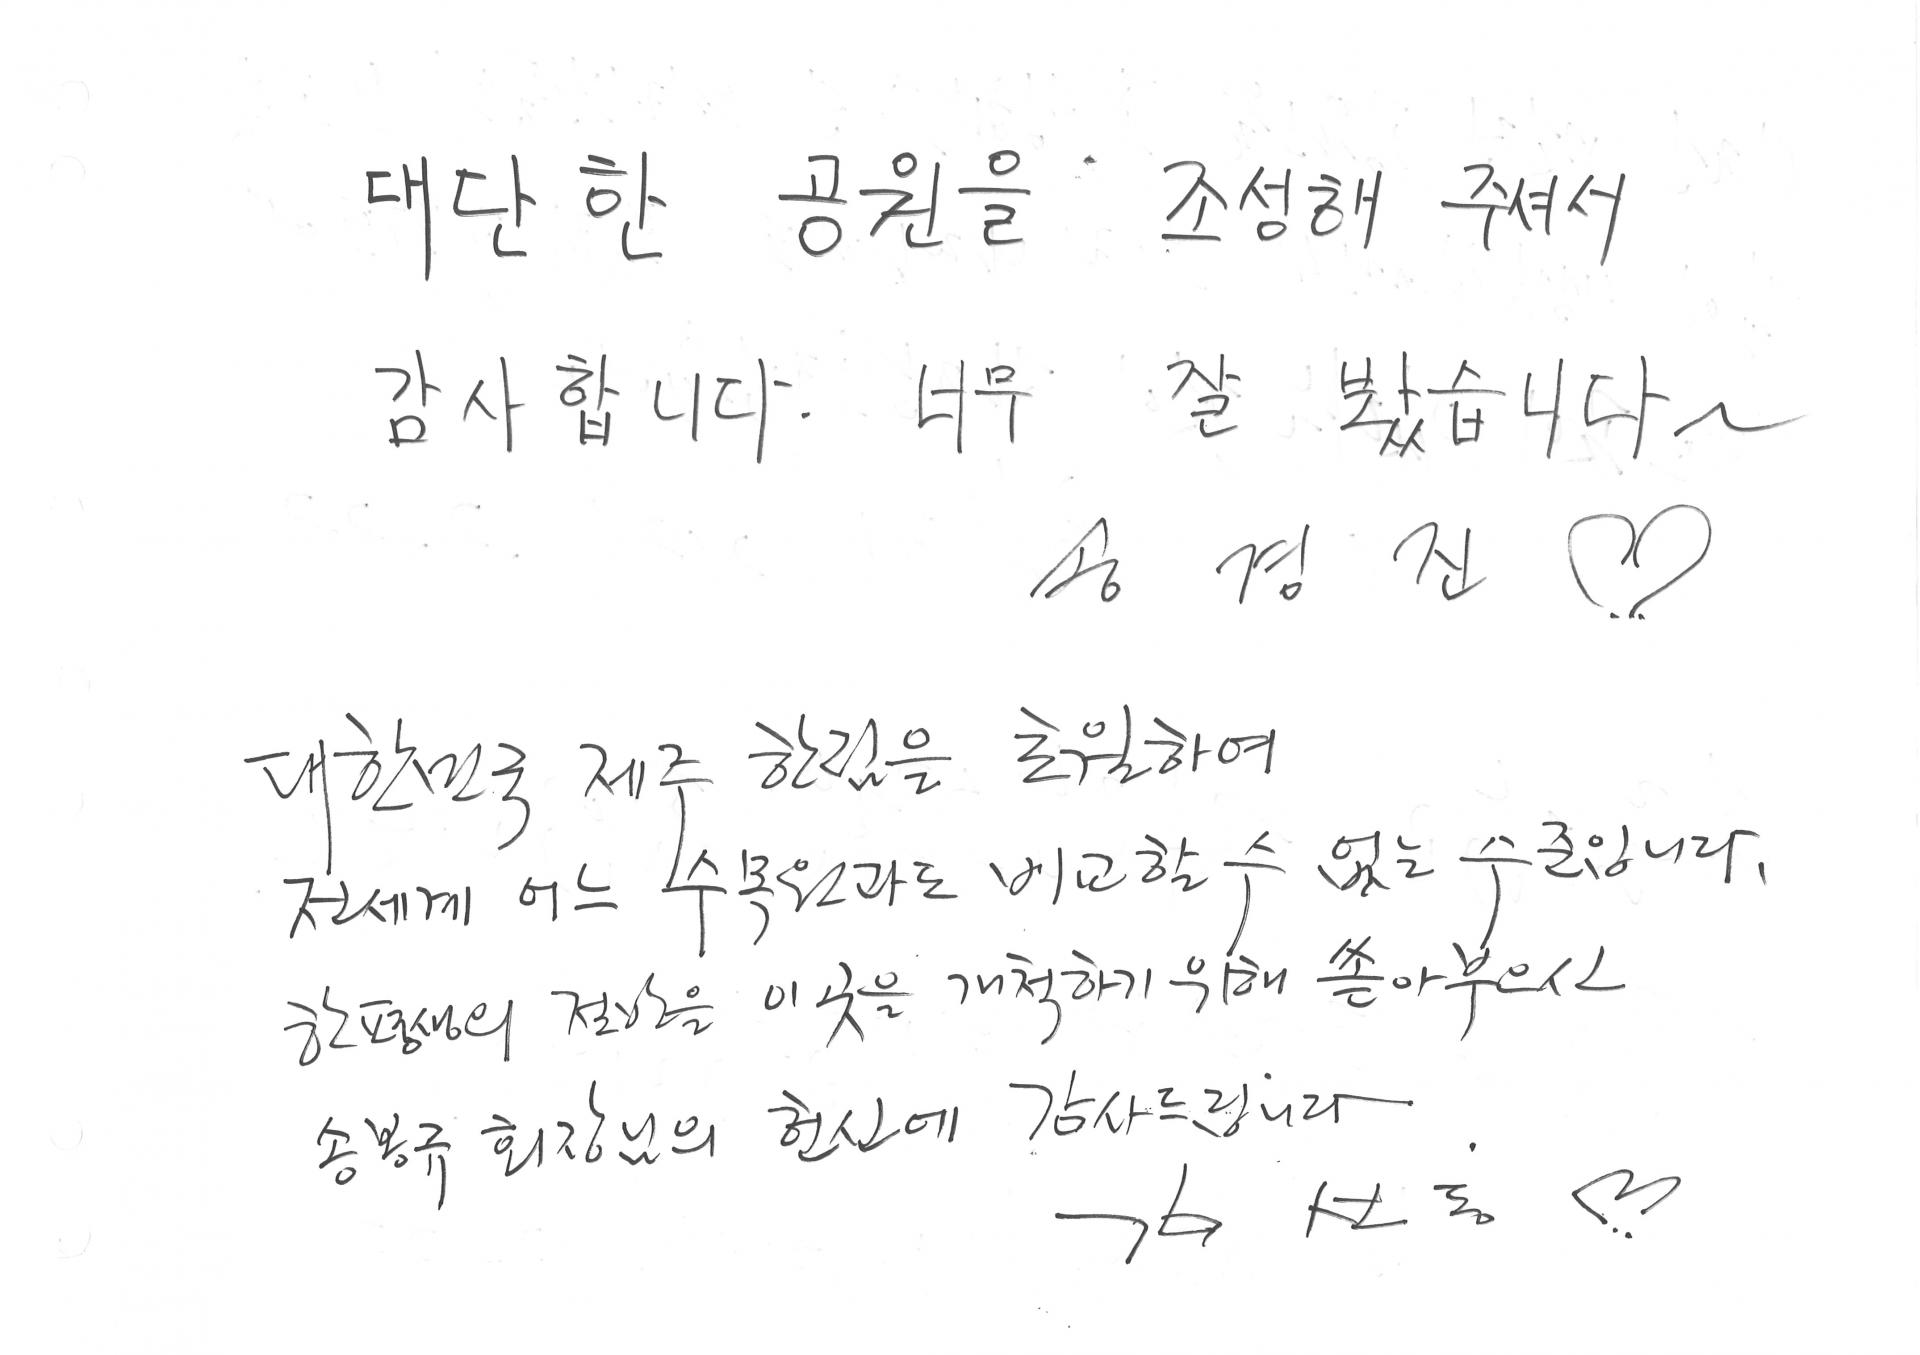 대단한 공원을 조성해 주셔서
감사합니다. 너무 잘 봤습니다~
송경진 ♡
대한민국 제주 한림을 초월하여
전세계 어느 수목원과도 비교할 수 없는 수준입니다.
한평생의 절반을 이곳을 개척하기 위해 쏟아부으신
송봉규 회장님의 헌신에 감사드립니다
김선동 ♡